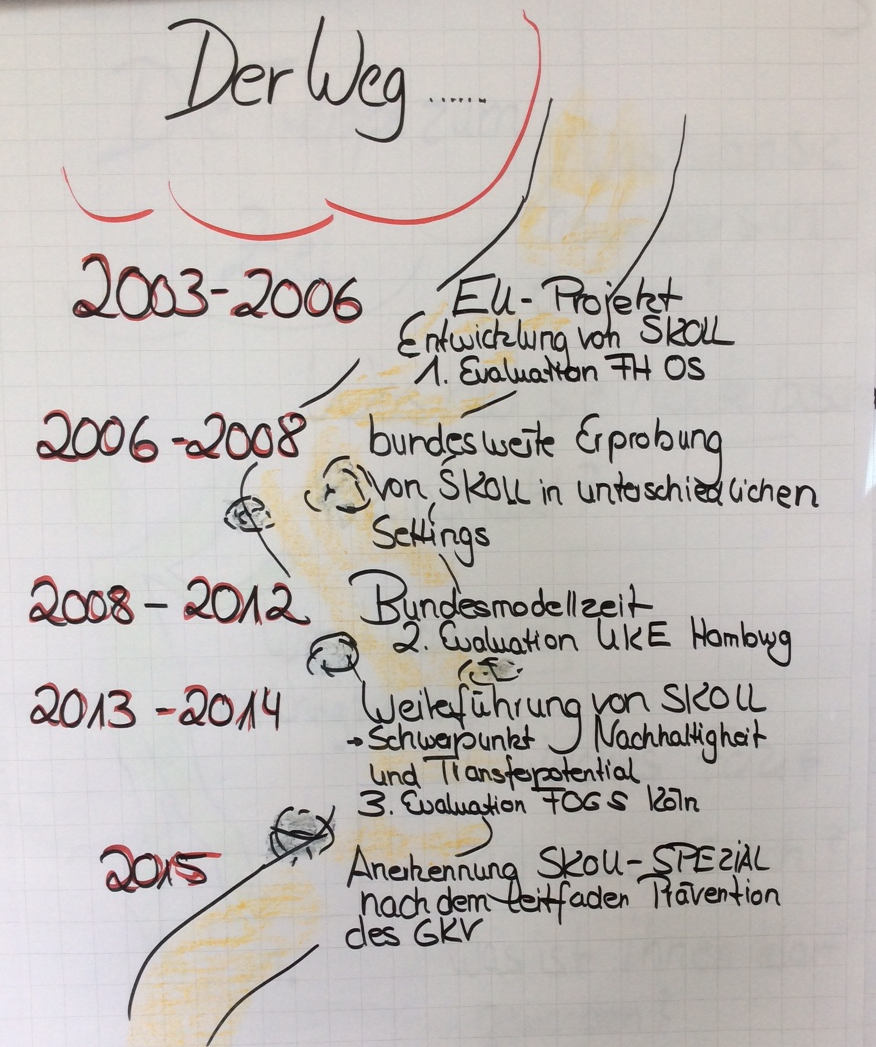 Der Weg ......
2003-2006
EU-Projekt
Entwicklung von SKOLL
1. Evaluation FH OS
2006-2008
bundesweite Erprobung
von SKOLL in unterschiedlichen
Settings
2008-2012
Bundesmodellzeit
2. Evaluation UKE Hamburg
2013-2014
Weiterführung von SKOLL
→ Schwerpunkt Nachhaltigkeit
und Transferpotential
3. Evaluation FOGS Köln
2015
Anerkennung SKOLL-SPEZIAL
nach dem Leitfaden Prävention
des GKV